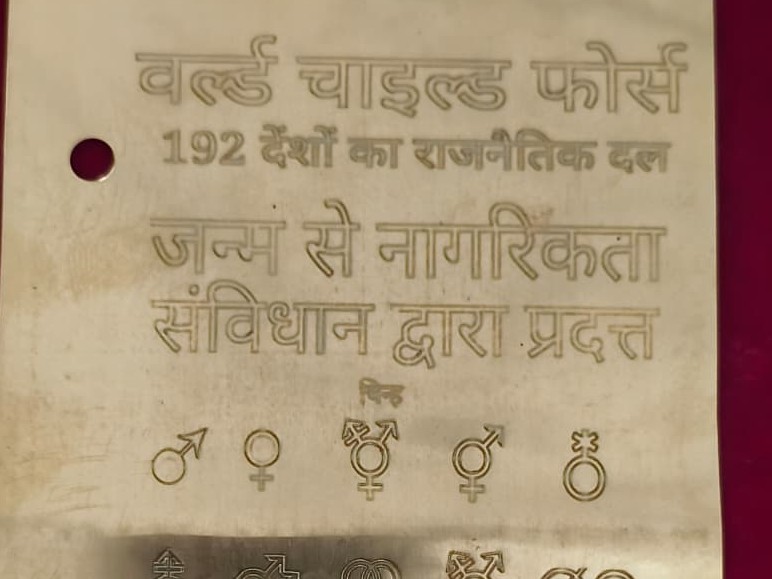 वर्ल्ड चाइल्ड फोर्स
192 देंशों का राजनैतिक दल
जन्म से नागरिकता
संविधान द्वारा प्रदत्त
चिन्ह